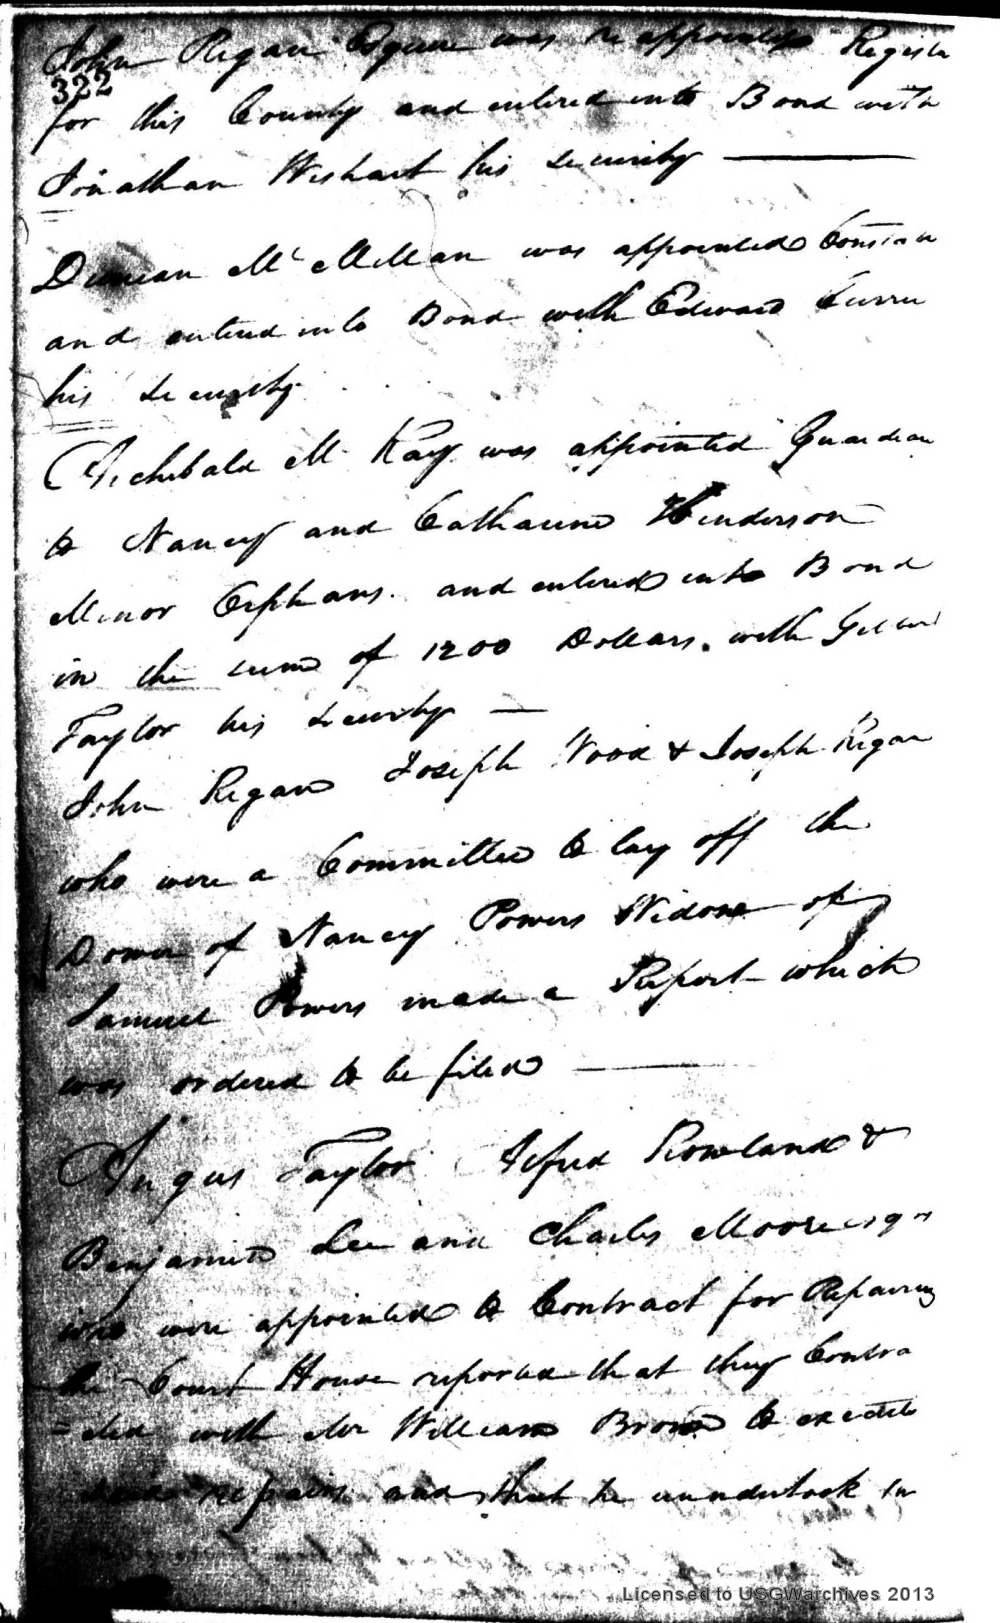 John Regan Esquire was re appointed Register
322
for this County and entered into Bond with
Jonathan Wishart his security
Duncan Mc Millan was appointed Constan
and entered into Bond with Edward Currie
his security
Archibald Mc Kay was appointed Guardian
to Nancy and Catharine Henderson
Minor Orphans. and entered into Bond
in the sum of 1200 Dollars. with
Taylor his security
John Regan Joseph Wood & Joseph Regan
who were a Committee to lay off the
Dower of Nancy Powers Widow of
Samuel Powers made a Report which
was ordered to be filed
Angus Taylor Alfred Rowland &
Benjamin Lee and Charles Moore esqrs
who were appointed to Contract for Repairing
the Court House reported that they Contra
=cted with Mr William Brown to execute
repairs and that he unndertook in
Licensed to USGWarchives 2013